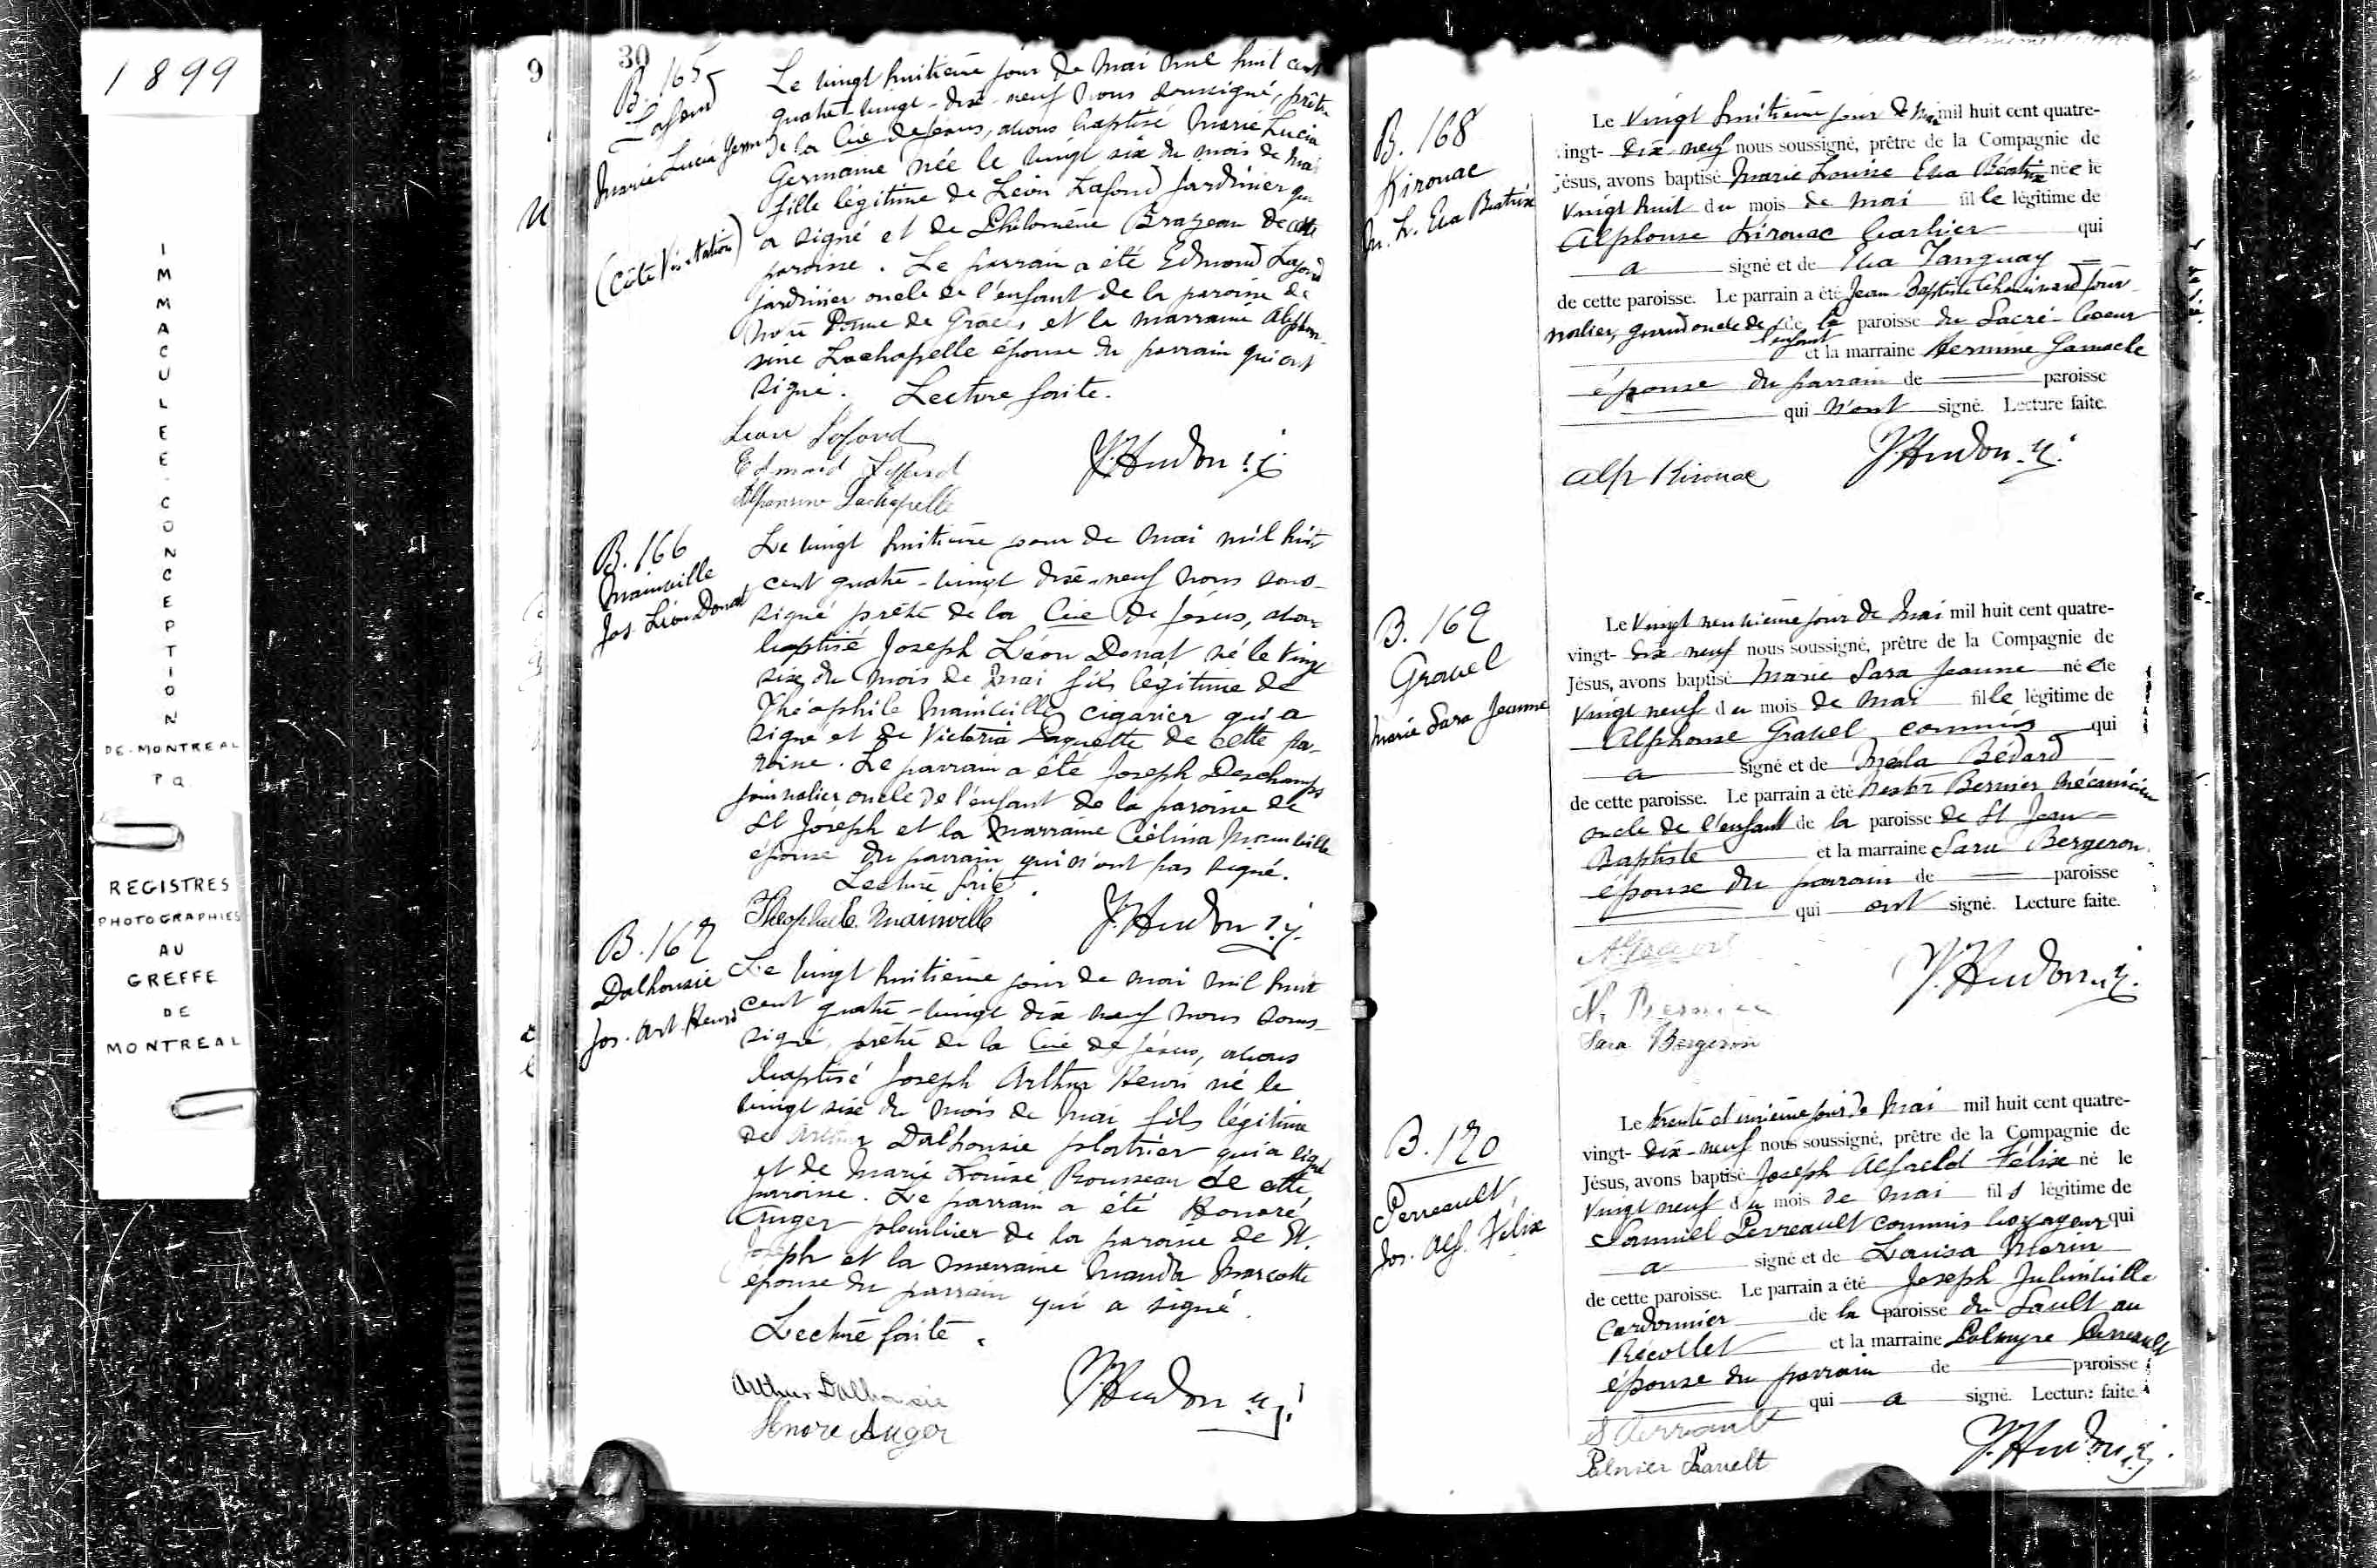 1899
IMMACULEE-CONCEPTION
DE-MONTREAL
P Q
REGISTRES
PHOTOGRAPHIES
AU
GREFFE
DE
MONTREAL
9
30
B. 165
Lafond
Marie Lucia Germ
(Côte Visitation)
Le vingt huitième jour de Mai mil huit cent
quatre-vingt-dix-neuf nous soussigné, prêtre
de la Cie de Jésus, avons baptisé Marie Lucia
Germaine née le vingt six du mois de Mai
fille légitime de Léon Lafond jardinier qui
a signé et de Philomène Brazeau de cette
paroisse. Le parrain a été Edmond Lafond
jardinier oncle de l'enfant de la paroisse de
Notre Dame de Grâces et la marraine Alphon-
sine Lachapelle épouse du parrain qui ont
signé. Lecture faite.
Leon Lafond
Edmond Lafond
Alphonsine Lachapelle
J. Hudon s.j.
B. 166
Mainville
Jos. Léon Donat
Le vingt huitième jour de Mai mil huit
cent quatre-vingt dix-neuf nous sous-
signé prêtre de la Cie de Jésus, avons
baptisé Joseph Léon Donat né le vingt
six du mois de Mai fils légitime de
Théophile Mainville cigarier qui a
signé et de Victoria Paquette de cette pa-
roisse. Le parrain a été Joseph Deschamps
journalier oncle de l'enfant de la paroisse de
St Joseph et la Marraine Célina Mainville
épouse du parrain qui n'ont pas signé.
Lecture faite.
Theophile Mainville
J. Hudon s.j.
B. 167
Dalhousie
Jos. Art. Henri
Le vingt huitième jour de mai mil huit
cent quatre-vingt dix neuf nous sous-
signé, prêtre de la Cie de Jésus, avons
baptisé Joseph Arthur Henri né le
vingt six du mois de Mai fils légitime
de Arthur Dalhousie plâtrier qui a signé
et de Marie Louise Rousseau de cette
paroisse. Le parrain a été Honoré
Auger plombier de la paroisse de St.
Joseph et la marraine Manda Marcotte
épouse du parrain qui a signé.
Lecture faite.
Arthur Dalhousie
Honore Auger
J. Hudon s.j.
B. 168
Kirouac
M. L. Eva Béatrix
Le vingt huitième jour de Mai mil huit cent quatre-
vingt-dix-neuf nous soussigné, prêtre de la Compagnie de
Jésus, avons baptisé Marie Louise Eva Béatrix née le
vingt huit du mois de mai fille légitime de
Alphonse Kirouac qui
a signé et de Eva Tanguay
de cette paroisse. Le parrain a été Jean-Baptiste Chouinard jour-
nalier, grand oncle de l'enfant de la paroisse du Sacré-Coeur
et la marraine Hermine Gamache
épouse du parrain de paroisse
qui n'ont signé. Lecture faite.
Alp Kirouac
J. Hudon s.j.
B. 169
Gravel
Marie Sara Jeanne
Le vingt neuvième jour de Mai mil huit cent quatre-
vingt-dix-neuf nous soussigné, prêtre de la Compagnie de
Jésus, avons baptisé Marie Sara Jeanne née le
vingt neuf du mois de Mai fille légitime de
Alphonse Gravel commis qui
a signé et de Bédard
de cette paroisse. Le parrain a été Nestor Bernier Mécanicien
oncle de l'enfant de la paroisse de St Jean-
Baptiste et la marraine Sara Bergeron
épouse du parrain de paroisse
qui ont signé. Lecture faite.
N. Bernier
Sara Bergeron
J. Hudon s.j.
B. 170
Perreault,
Jos. Alf. Félix
Le trente et unième jour de Mai mil huit cent quatre-
vingt-dix-neuf nous soussigné, prêtre de la Compagnie de
Jésus, avons baptisé Joseph Alfred Félix né le
vingt neuf du mois de mai fils légitime de
Samuel Perreault commis voyageur qui
a signé et de Louisa Morin
de cette paroisse. Le parrain a été Joseph Julinville
cordonnier de la paroisse du Sault au
Récollet et la marraine Palmyre Perreault
épouse du parrain de paroisse
qui a signé. Lecture faite.
S Perreault
J. Hudon s.j.